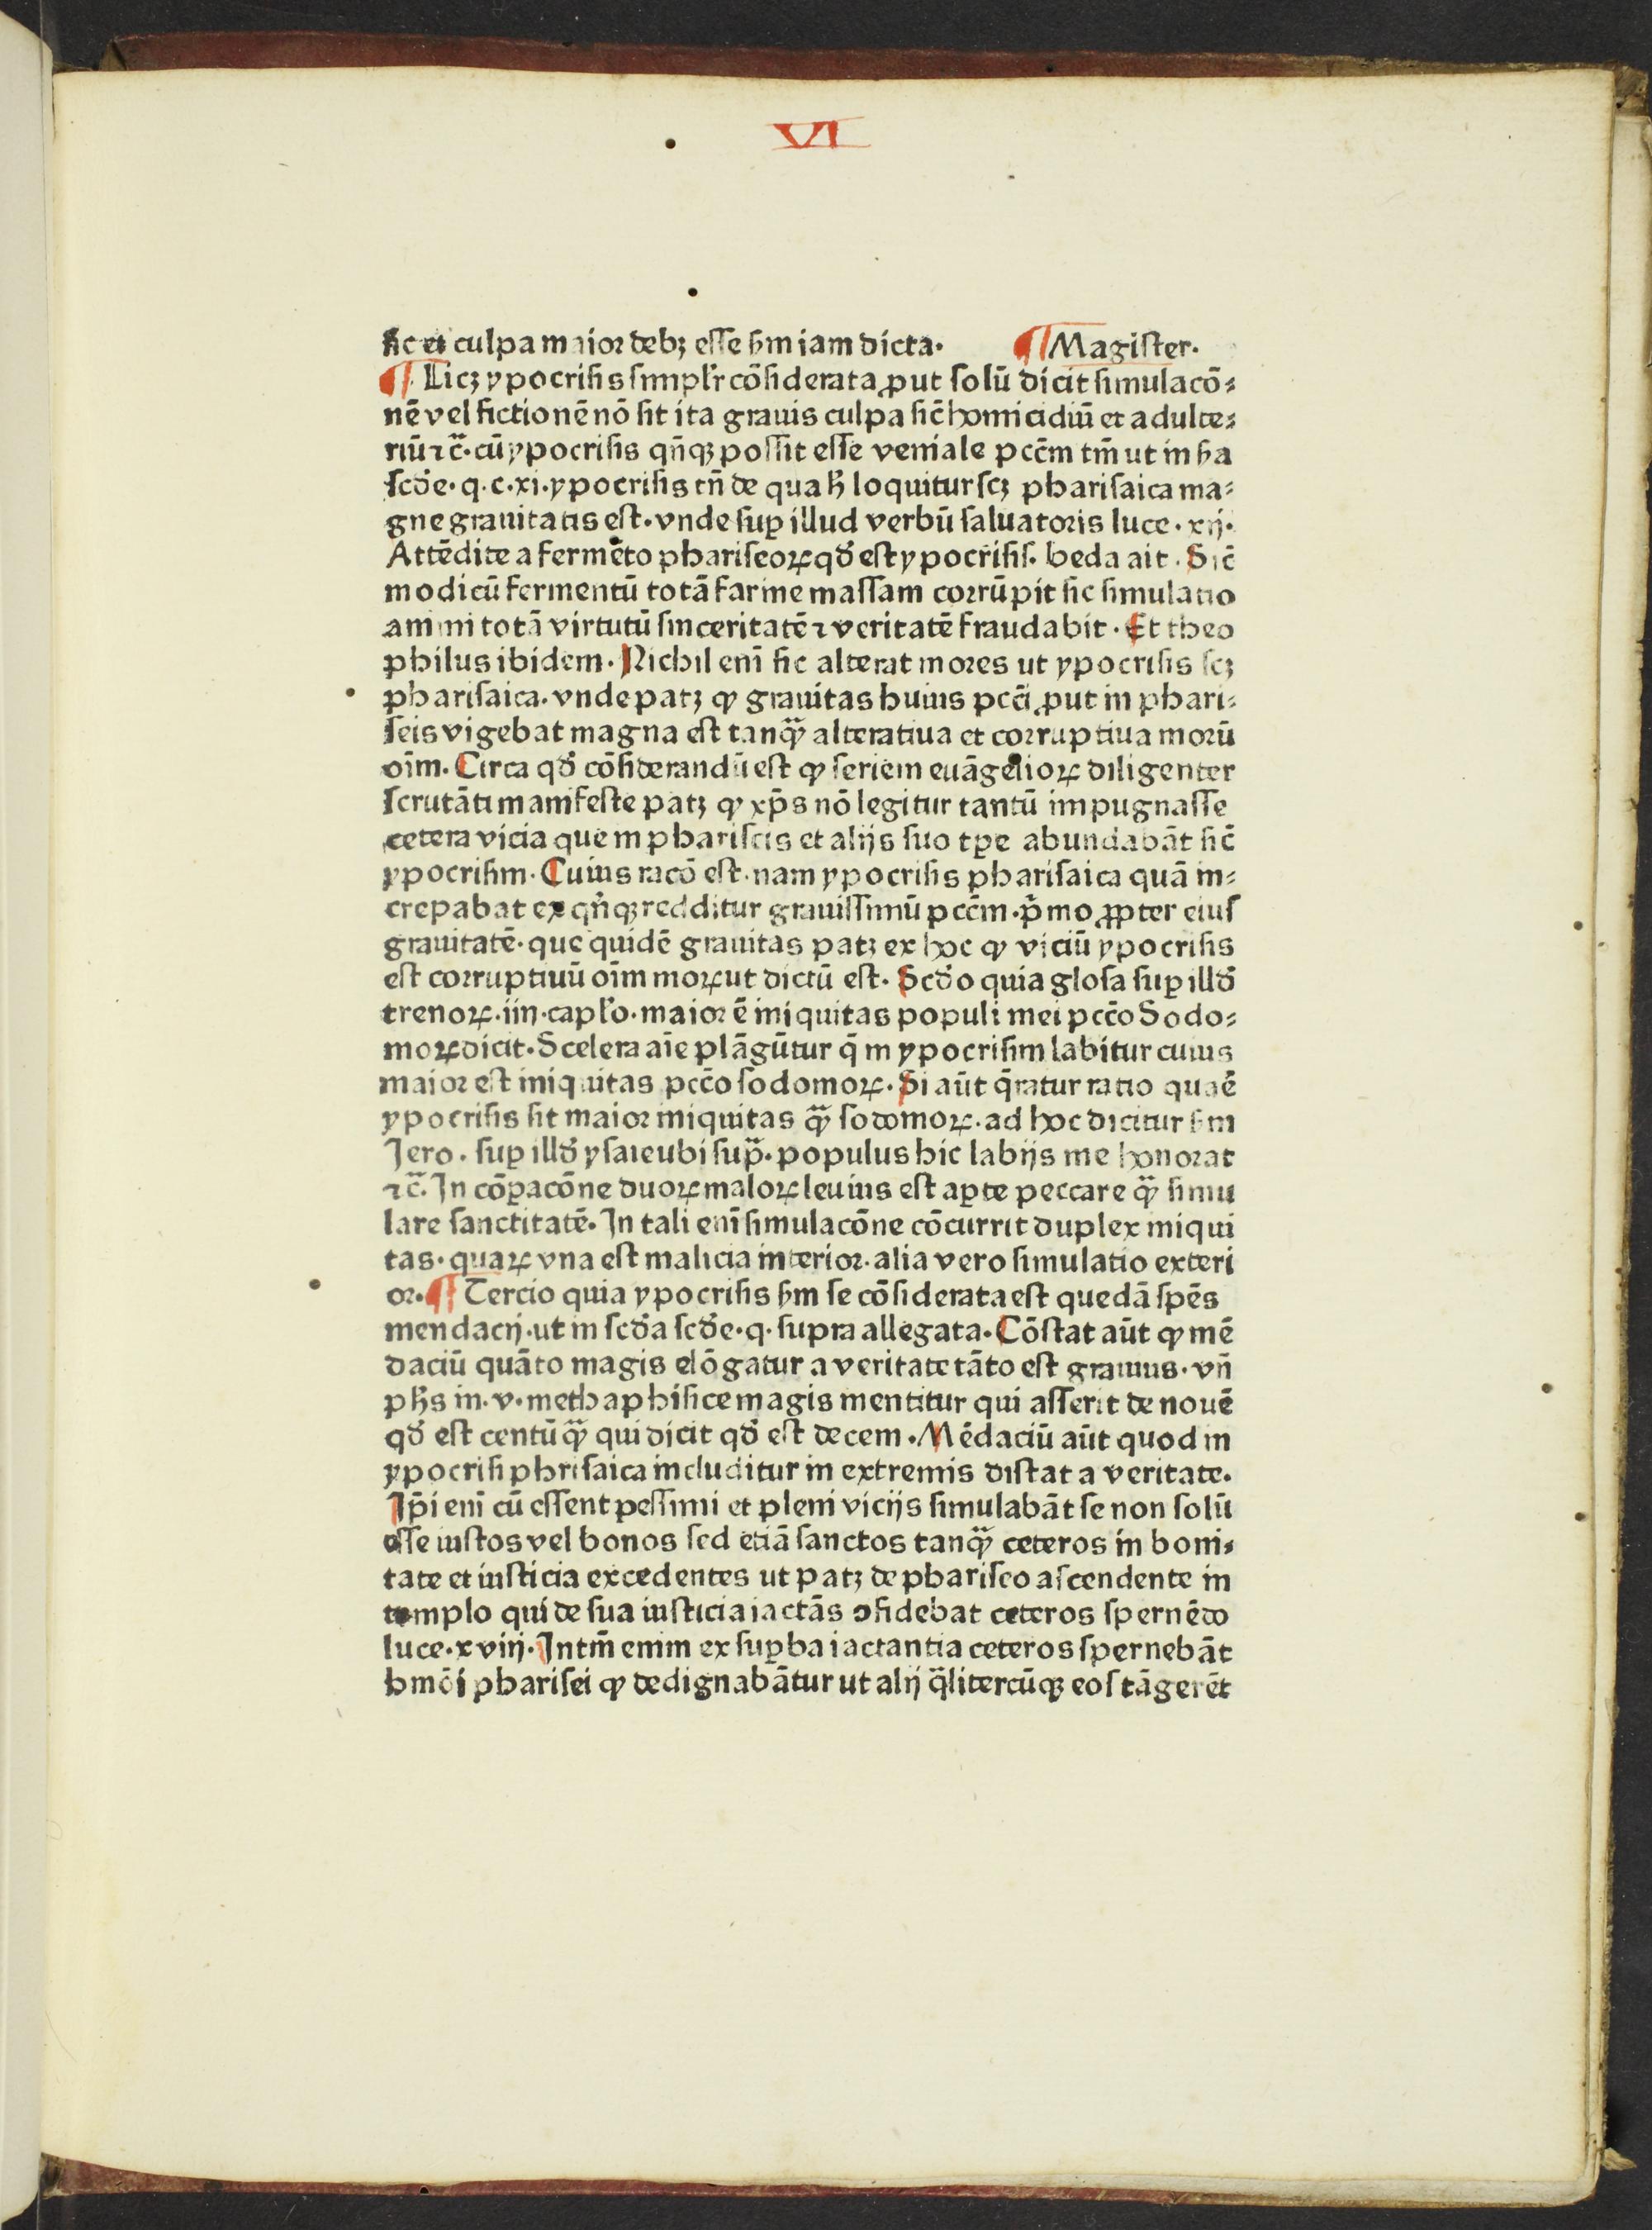 VI
sic et culpa maior debꝫ esse ẜm iam dicta. ¶ Magister.
¶ Licꝫ ypocrisis simpl̕r cōsiderata ꝓut solū dicit simulacō⸗
nē vel fictionē nō sit ita grauis culpa sic̄ homicidiū et adulte⸗
riū ⁊c̄. cū ypocrisis qn̄qꝫ possit esse veniale pcc̄m tm̄ ut in ẜa
scd̕e. q. c. xi. ypocrisis tn̄ de qua ħ loquitur scꝫ pharisaica ma⸗
gne grauitatis est. vnde suꝑ illud verbū saluatoris luce. xij.
Attēdite a fermēto phariseoꝝ qd̕ est ypocrisis. beda ait. Sic̄
modicū fermentū totā farine massam corrūpit sic simulatio
animi totā virtutū sinceritatē ⁊ veritatē fraudabit. Et theo
philus ibidem. Nichil eni̅ sic alterat mores ut ypocrisis scꝫ
pharisaica. vnde patꝫ ꝙ grauitas huius pcc̄i ꝓut in phari⸗
seis vigebat magna est tanqͣꝫ alteratiua et corruptiua morū
oi̅m. Circa qd̕ cōsiderandū est ꝙ seriem euāgelioꝝ diligenter
scrutāti manifeste patꝫ ꝙ xp̄s nō legitur tantū impugnasse
cetera vicia que in phariseis et alijs suo tꝑe abundabāt sic̄
ypocrisim. Cuius racō est. nam ypocrisis pharisaica quā in⸗
crepabat ex qn̄qꝫ redditur grauissimū pcc̄m. p̄mo ꝓpter eius
grauitatē. que quidē grauitas patꝫ ex hoc ꝙ viciū ypocrisis
est corruptiuū oi̅m moꝝ ut dictū est. Scd̕o quia glosa suꝑ illd̕
trenoꝝ. iiij. capl̕o. maior ē iniquitas populi mei pcc̄o Sodo⸗
moꝝ dicit. Scelera ai̅e plāgūtur q̄ in ypocrisim labitur cuius
maior est iniquitas pcc̄o sodomoꝝ. Si aūt q̄ratur ratio quaē
ypocrisis sit maior iniquitas qͣꝫ sodomoꝝ. ad hoc dicitur ẜm
Jero. suꝑ illd̕ ysaie ubi supͣ. populus hic labijs me honorat
⁊c̄. In cōꝑacōne duoꝝ maloꝝ leuius est aꝑte peccare qͣꝫ simu
lare sanctitatē. In tali eni̅ simulacōne cōcurrit duplex iniqui
tas. quaꝝ vna est malicia interior. alia vero simulatio exteri
or. ¶ Tercio quia ypocrisis ẜm se cōsiderata est quedā spēs
mendacij. ut in scd̕a scd̕e. q. supra allegata. Cōstat aūt ꝙ mē
daciū quāto magis elōgatur a veritate tāto est grauius. vn̄
pħs in. v. methaphisice magis mentitur qui asserit de nouē
qd̕ est centū qͣꝫ qui dicit qd̕ est decem. Mēdaciū aūt quod in
ypocrisi phrisaica includitur in extremis distat a veritate.
Ip̄i eni̅ cū essent pessimi et pleni vicijs simulabāt se non solū
esse iustos vel bonos sed etiā sanctos tanqͣꝫ ceteros in boni⸗
tate et iusticia excedentes ut patꝫ de phariseo ascendente in
templo qui de sua iusticia iactās ꝯfidebat ceteros spernēdo
luce. xviij. Intm̄ enim ex suꝑba iactantia ceteros spernebāt
hmōi pharisei ꝙ dedignabātur ut alij q̄litercūqꝫ eos tāgerēt